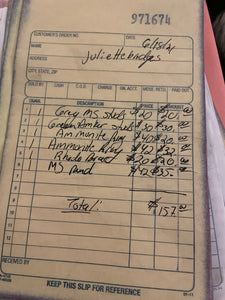 971674
CUSTOMER'S ORDER NO. DATE 6/15/21
NAME Juliettebridges
ADDRESS
CITY, STATE, ZIP
SOLD BY CASH C.O.D. CHARGE ON. ACCT. MDSE. RETD. PAID OUT
QUAN. DESCRIPTION PRICE AMOUNT
1 1 Grey MS studs $20 20.
2 1 Golden Amber studs $30 $30.
3 1 Ammonite Ring $40 $20
4 1 Ammonite Ring $40 $32
5 Rhodo Bracel $20 $20
6 MS Pend $42 $35
7
8
9 Total:
10 $157
11
12
RECEIVED BY
KEEP THIS SLIP FOR REFERENCE
01-11